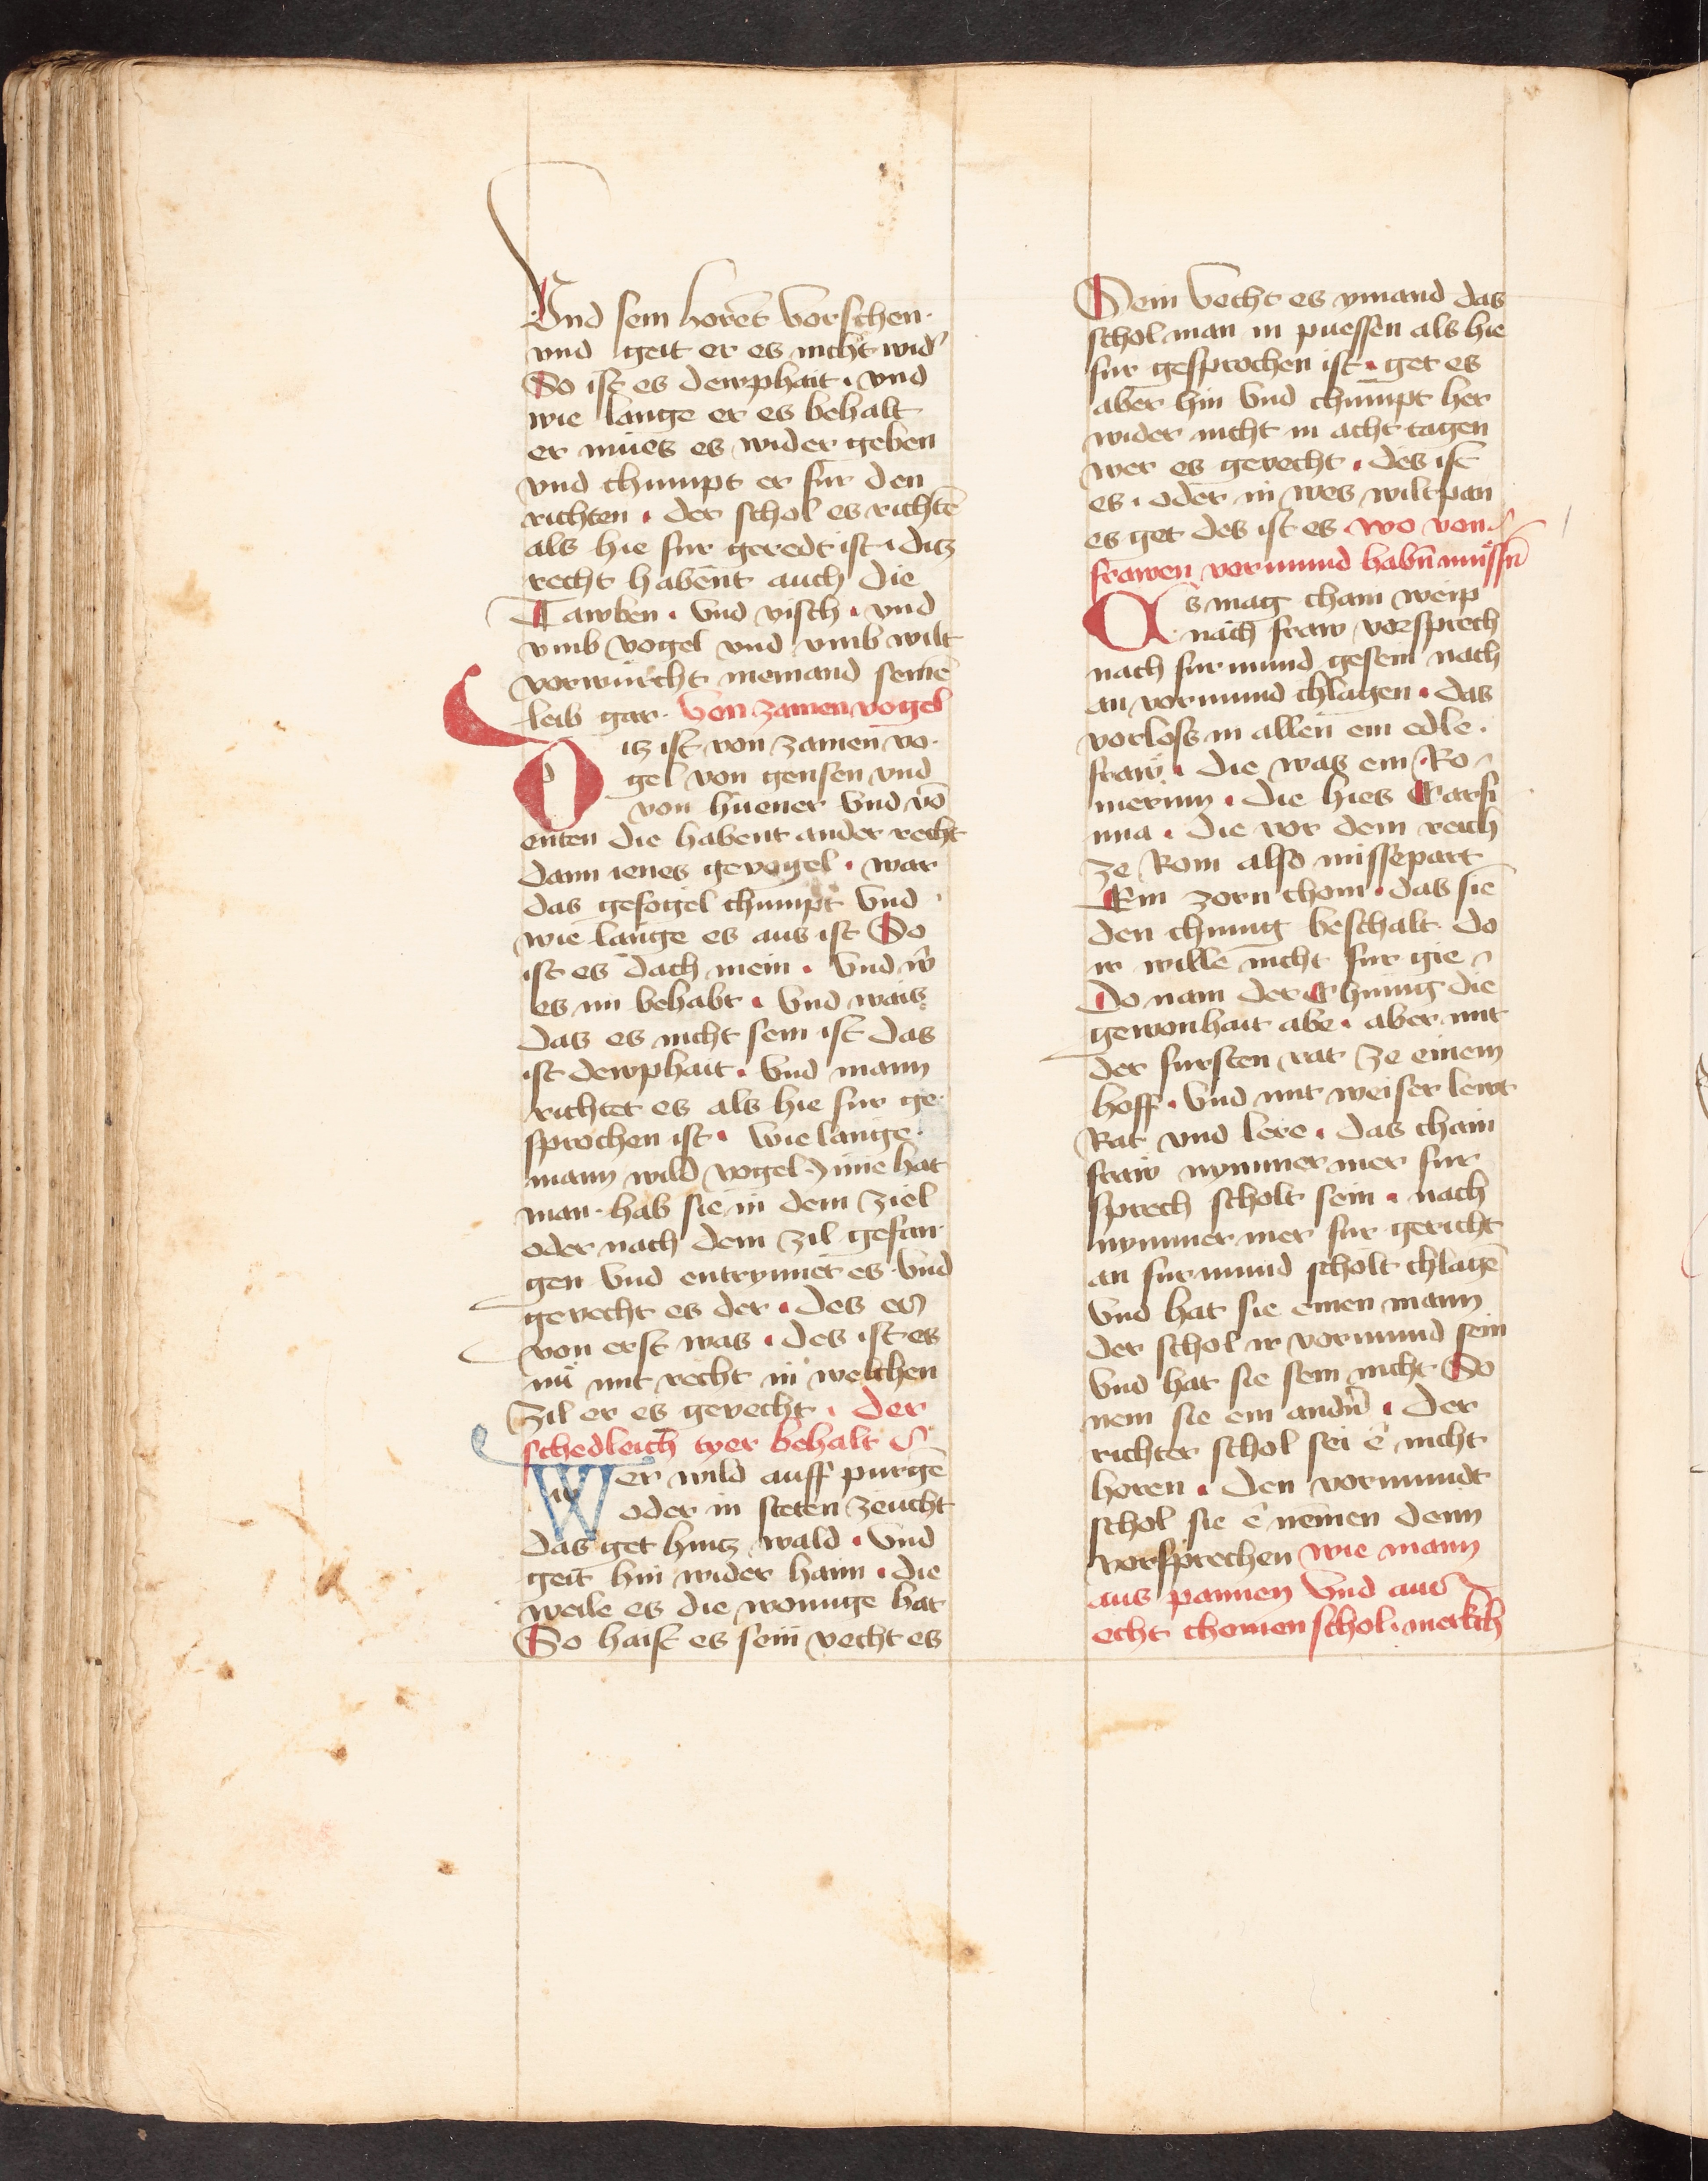 Vnd sein horet vorschen.
vnd geit er es nicht wid'
So ist es dewphait. vnd
wie lange er es behalt
er mues es wider geben
vnd chumpt er fur den
richten. der schol es richtē
als hie fur geredt ist. ditz
recht habent auch die
Tawben. Vnd visch. vnd
vmb vogel vnd vmb wilt
vorwurcht niemand seinē
leib gar. Von zamen vogel
Ditz ist von zamen vo-
gel von gensen vnd
von huener Vnd vō
enten die habent ander recht
dann ienes gevogel. war
das gefogel chumpt Vnd
wie lange es aus ist So
ist es dach mein. Vnd w'
es im behabt. Vnd wais
das es nicht sein ist das
ist dewphait. Vnd mann
richtet es als hie fur ge-
sprochen ist. Wie lange
mann wild vogel inne hat
man hab sie in dem ziel
oder nach dem zil gefan
gen Vnd entrynnet es Vnd
gevecht es der. des es
von erst was. des ist es
nū mit recht in welchen
zil er es gevecht. der
schedleich tyer behalt
Wer wild auff purgē
oder in steten zeucht
das get hintz wald. Vnd
geit hin wider haim. die
weile es die wonuge hat
So haist es sein vecht es
Dem Vecht es ymand das
schol man in puessen als hie
fur gesprochen ist. get es
aber hin Vnd chumpt her
wider nicht in acht tagen
wer es gevecht. des ist
es. oder in wes wiltpan
es get des ist es wo von
frawen vormund habn̄ mussn̄
Es mag chain weip
nach fraw vorsprech
nach furmund gesein nach
an vormund chlagen. das
vorlos in allen ein edle.
fraw. die was ein Ro-
merinn. die hies Carfi
nna. die vor dem reich
ze Rom also missepart
Ein zorn chom. das sie
den chunig beschalt do
ir wille nicht fur gie
Do nam der Chunig die
gewonhait abe. aber mit
der fursten rat ze einem
hoff. Vnd mit weiser lewt
Rat vnd lere. das chain
fraw nymmer mer fur
sprech scholt sein. nach
nymmer mer fur gericht
an furmund scholt chlagē
Vnd hat sie einen mann
der schol ir vormund sein
Vnd hat sie sein nicht So
nem sie ein andn̄. Der
richter schol sei ê nicht
horen. Den vormundt
schol sie ê nemen denn
vorsprechen wie mann
aus pannen Vnd aus
echt chomen schol. merkch